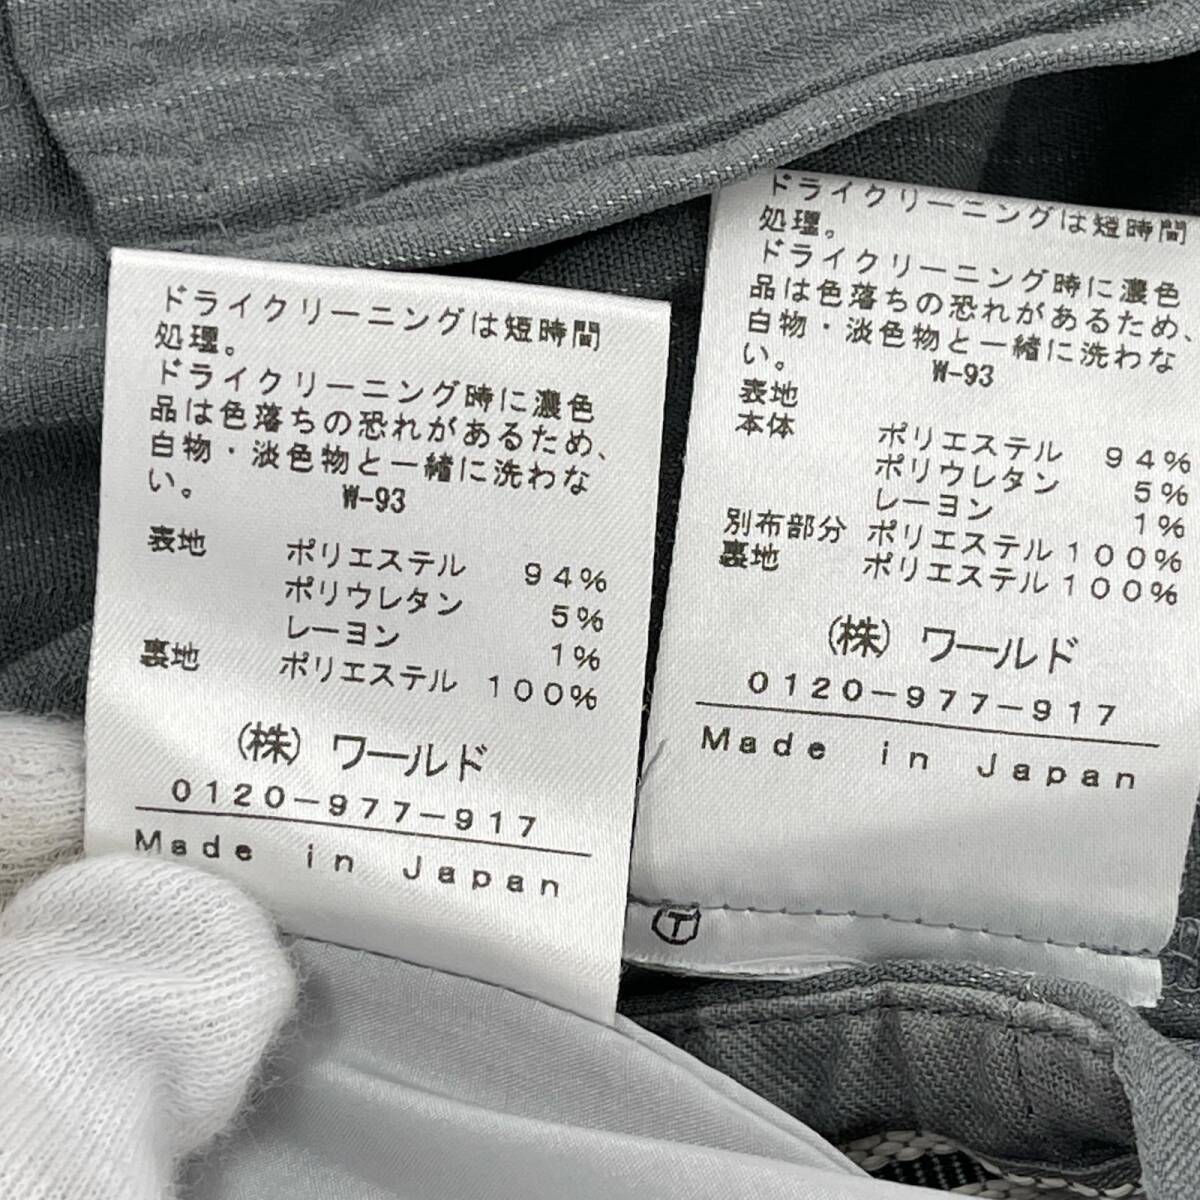 ドライクリーニングは短時間
処理。
ドライクリーニング時に濃色
品は色落ちの恐れがあるため、
白物・淡色物と一緒に洗わな
い。 W-93
表地 ポリエステル 94%
ポリウレタン 5%
レーヨン 1%
裏地 ポリエステル 100%
(株) ワールド
0120-977-917
Made in Japan
ドライクリーニングは短時間
処理。
ドライクリーニング時に濃色
品は色落ちの恐れがあるため、
白物・淡色物と一緒に洗わな
い。 W-93
表地
本体 ポリエステル 94%
ポリウレタン 5%
レーヨン 1%
別布部分 ポリエステル 100%
裏地 ポリエステル 100%
(株) ワールド
0120-977-917
Made in Japan
T